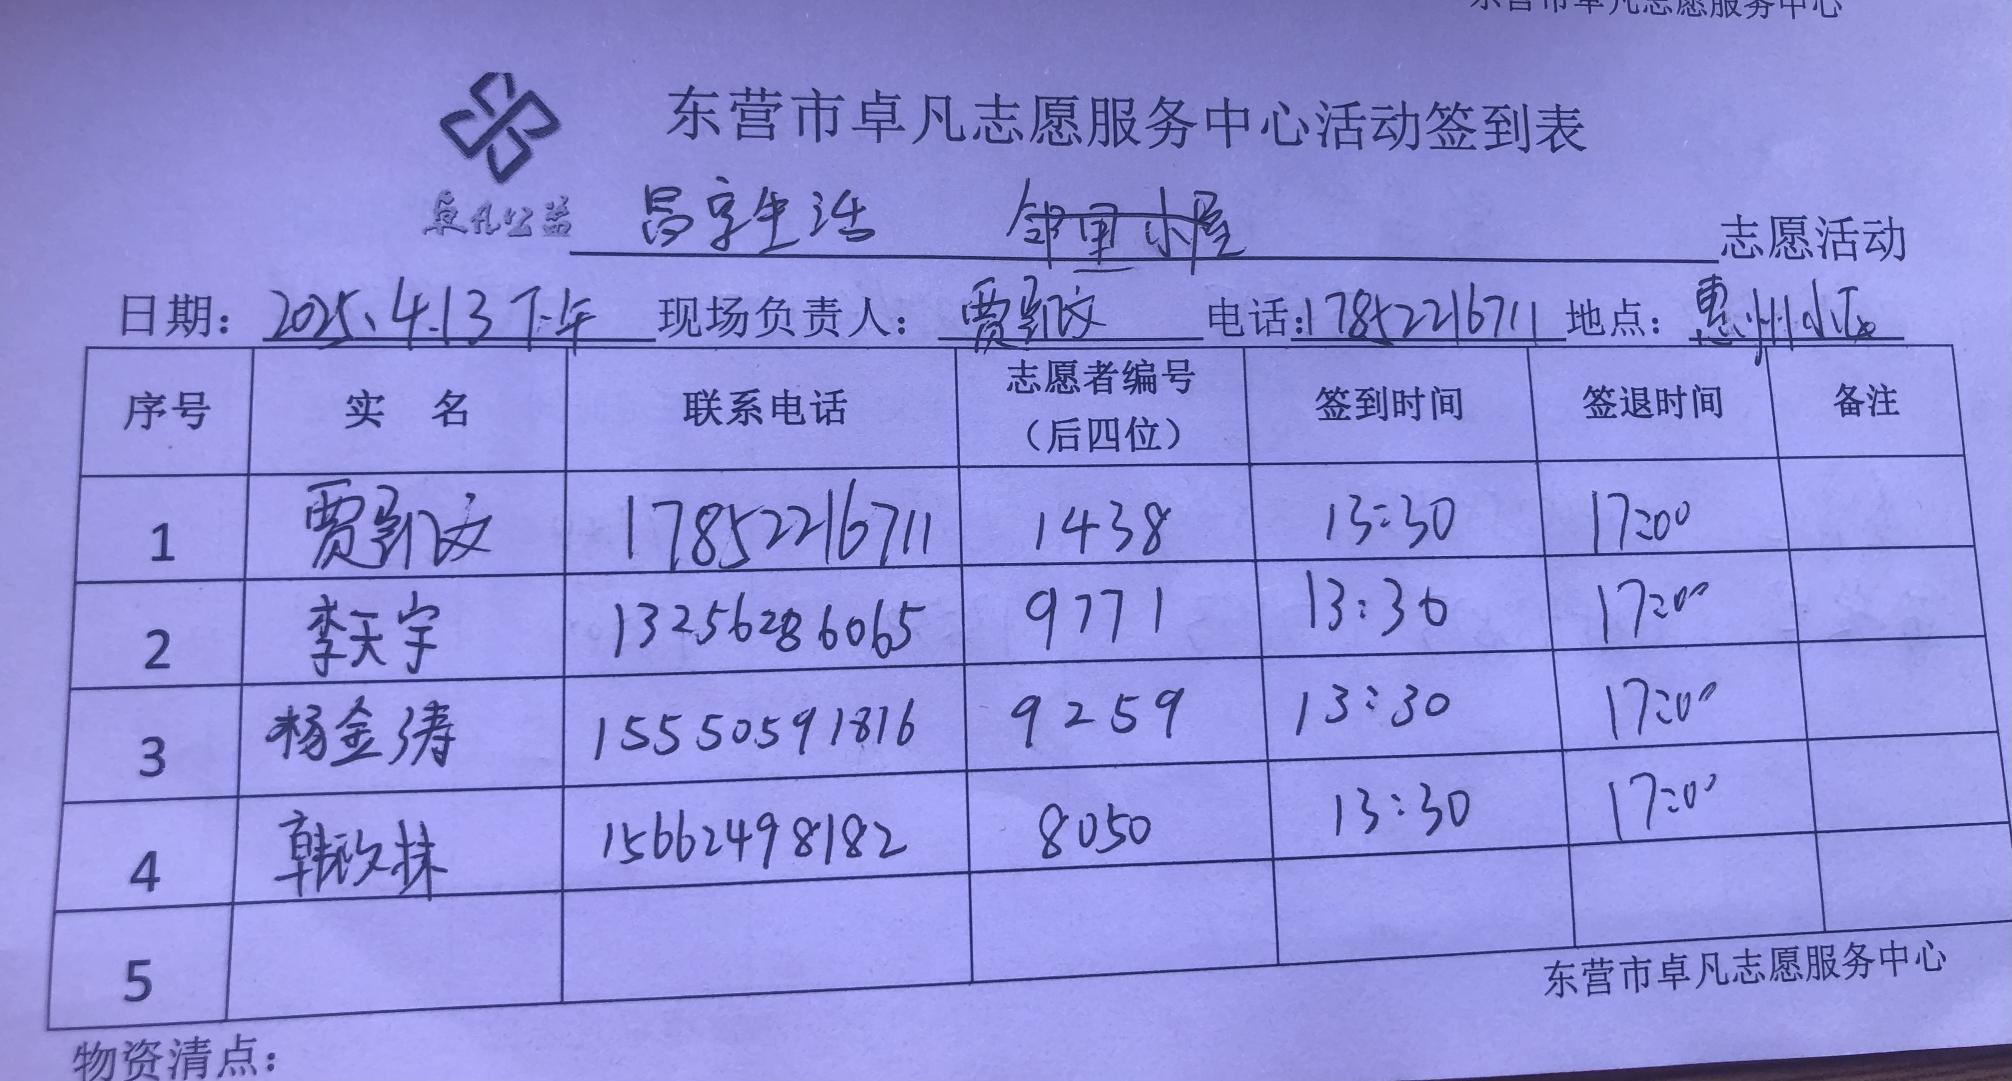 东营市卓凡志愿服务中心
东营市卓凡志愿服务中心活动签到表
卓凡公益 昌宇生活 邻里小屋 志愿活动
日期：2025.4.13下午 现场负责人：贾凯文 电话:17852216711 地点：惠州小区
序号 实 名 联系电话 志愿者编号（后四位） 签到时间 签退时间 备注
1 贾凯文 17852216711 1438 13:30 17:00
2 李天宇 13256286065 9771 13:30 17:00
3 杨金涛 15550591816 9259 13:30 17:00
4 韩 15662498182 8050 13:30 17:00
5
东营市卓凡志愿服务中心
物资清点：